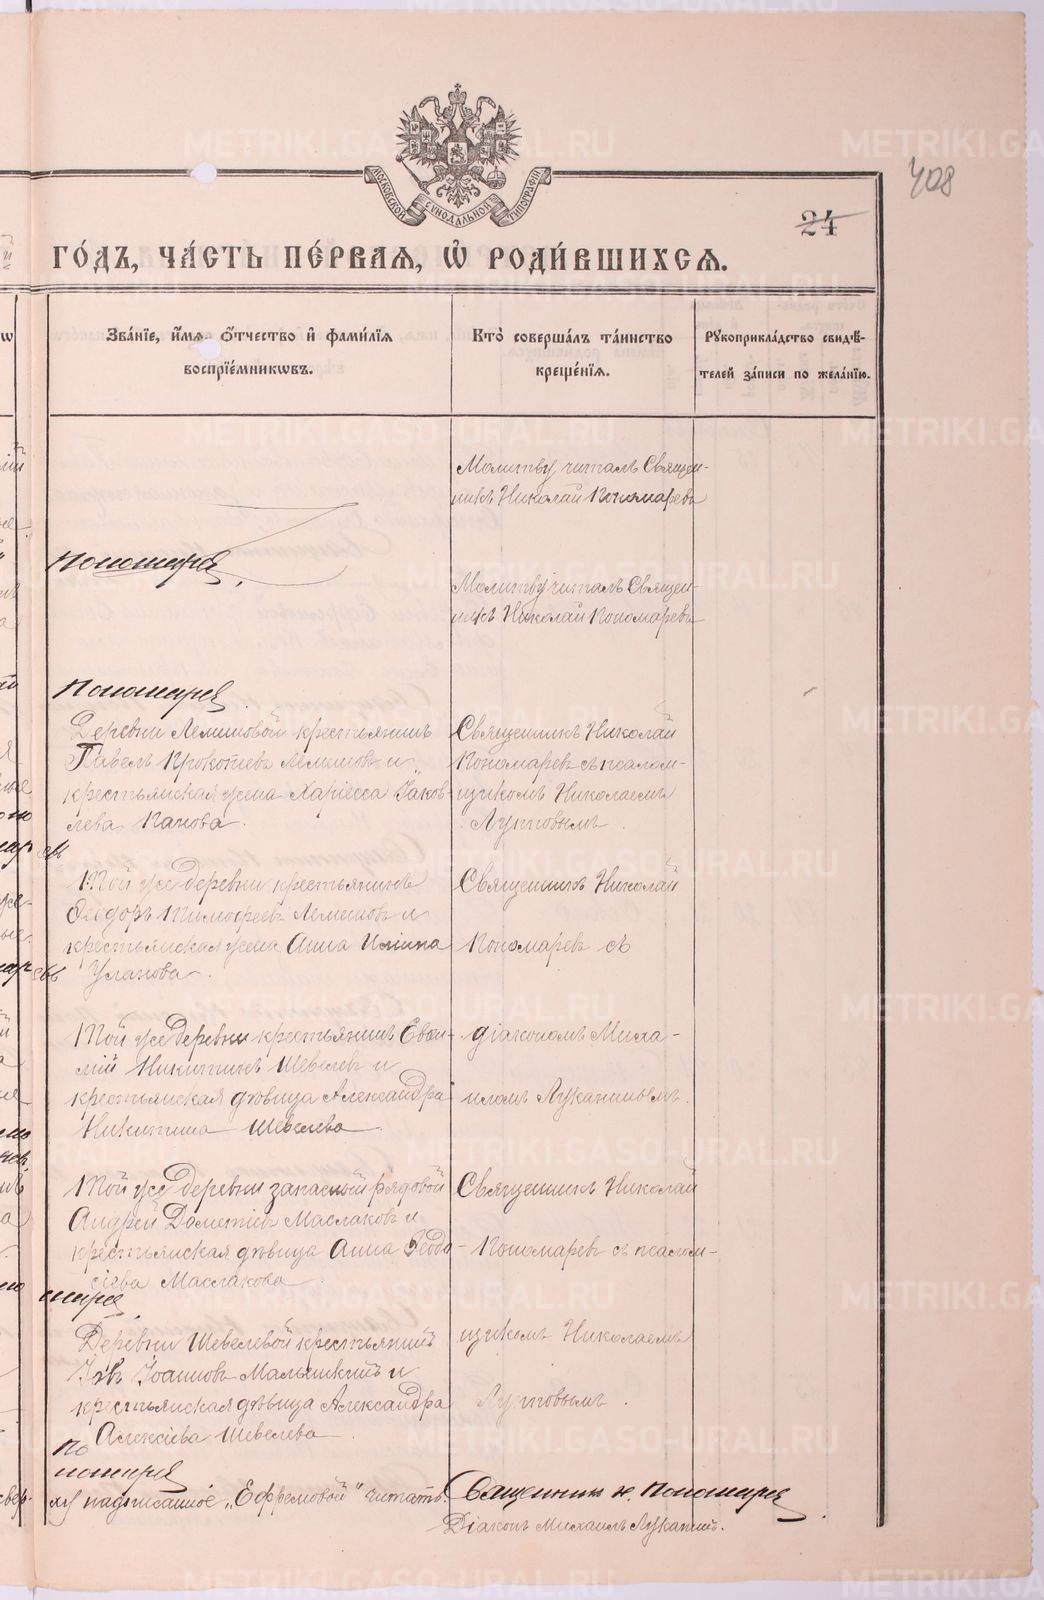 408
24
МОСКОВСКОЙ СѴНОДАЛЬНОЙ ТИПОГРАФІИ
ГО́ДЪ, ЧА́СТЬ ПЕ́РВАѦ, Ѡ҆ РОДИ́ВШИХСѦ.
Зва́нїе, и҆́мѧ, ѻ҆́тчество и҆ фами́лїѧ
воспрїе́мникѡвъ.
Кто̀ соверша́лъ та́инство
креще́нїѧ.
Рꙋкоприкла́дство свидѣ́-
телей за́писи по жела́нїю.
Молитву читалъ Священ-
никъ Николай Пономаревъ
Пономарев
Молитву читалъ Священ-
никъ Николай Пономаревъ
Пономарев
Деревни Лемишовой крестьянинъ
Павелъ Лемишовъ и
крестьянская жена Іаков-
лева Панова.
Священникъ Николай
Пономаревъ съ псалом-
щикомъ Николаемъ
Той же деревни крестьянинъ
Ѳеодоръ Тимофеевъ Лемишовъ и
крестьянская жена Анна Иліина
Уланова.
Священникъ Николай
Пономаревъ съ
Той же деревни крестьянинъ
Никитинъ Шевелевъ и
крестьянская дѣвица Александра
Никитина Шевелева.
діакономъ Миха-
иломъ Луканинымъ.
Той же деревни запасный рядовой
Андрей Дометіевъ Маслаковъ и
крестьянская дѣвица Анна Ѳеодо-
сіева Маслакова
Священникъ Николай
Пономаревъ съ псалом-
щикомъ Николаемъ
Деревни Шевелевой крестьянинъ
Іовъ Іоанновъ и
крестьянская дѣвица Александра
Алексіева Шевелева.
По
номарев
надписанное „Ефремовой" читать.
Священник Н. Пономарев
Діаконъ Михаилъ Луканинъ.
METRIKI.GASO-URAL.RU